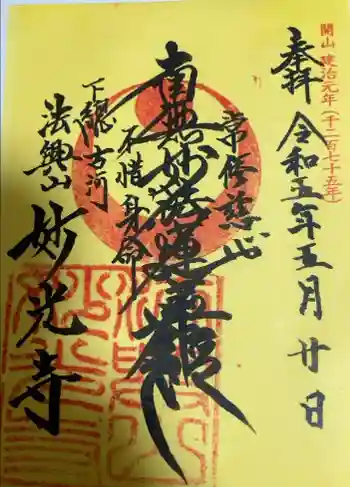 開山 建治元年(千二百七十五年)
奉拝 令和五年五月廿日
常修慈心
南無妙法蓮華経
不惜身命
下総古河
法興山 妙光寺